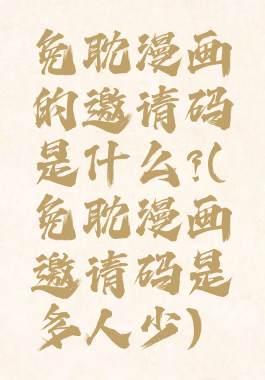 兔耽漫画
的邀请码
是什么?(
兔耽漫画
邀请码是
多人少)